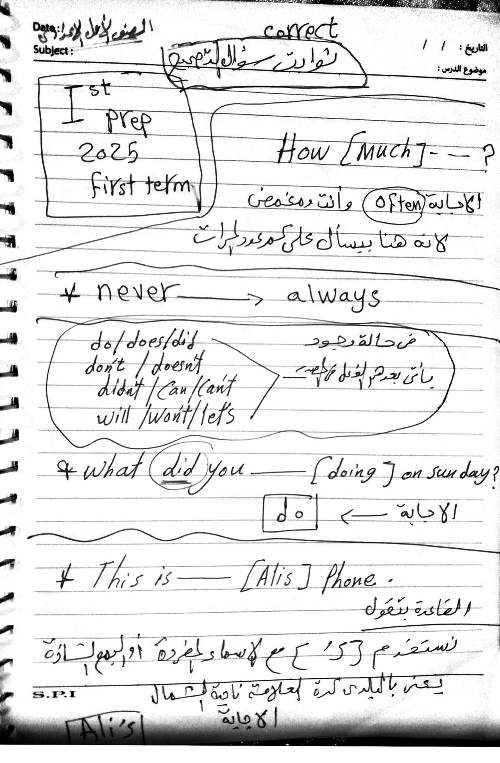 Date:
الصف الأول الإعدادي
correct
التاريخ : / /
Subject :
توادت سؤال التصحيح
موضوع الدرس :
Ist
prep
2025
first term
How [Much] - — ?
الاجابة (often) وأنت ومغمض
لانه هنا بيسأل على كم عدد المرات
* never → always
do/does/did
don't / doesn't
didn't / can / can't
will / won't / let's
فى حالة وجود
يأتى بعدهم الفعل فى المصدر
* What did you — [doing] on sunday?
الاجابة → do
* This is — [Alis] Phone .
القاعدة بتقول
نستخدم ['s] مع الاسماء المفردة أو الجمع الشاذة
يعنى بالبلدى كدة العلامة ناحية الشمال
S.P.I
الاجابة
Ali's